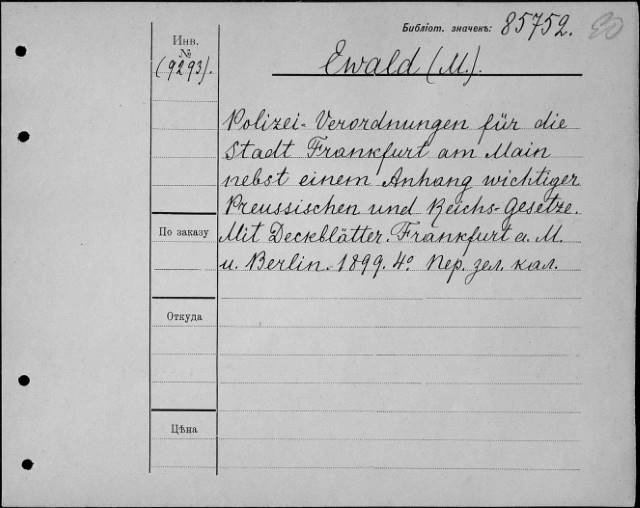 Библіот. значекъ: 85752.
Инв.
№
(9293).
Ewald (M.).
Polizei-Verordnungen für die
Stadt Frankfurt am Main
nebst einem Anhang wichtiger
Preussischen und Reichs-Gesetze.
Mit Deckblätter. Frankfurt a. M.
u. Berlin. 1899. 4º. Пер. зел. кал.
По заказу
Откуда
Цѣна